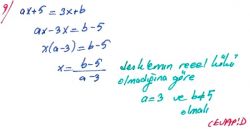 9/ ax+5=3x+b
ax-3x=b-5
x(a-3)=b-5
x=\frac{b-5}{a-3}
denklemin reeel kökü
olmadığına göre
a=3 ve b≠5
olmalı
(CEVAP:D